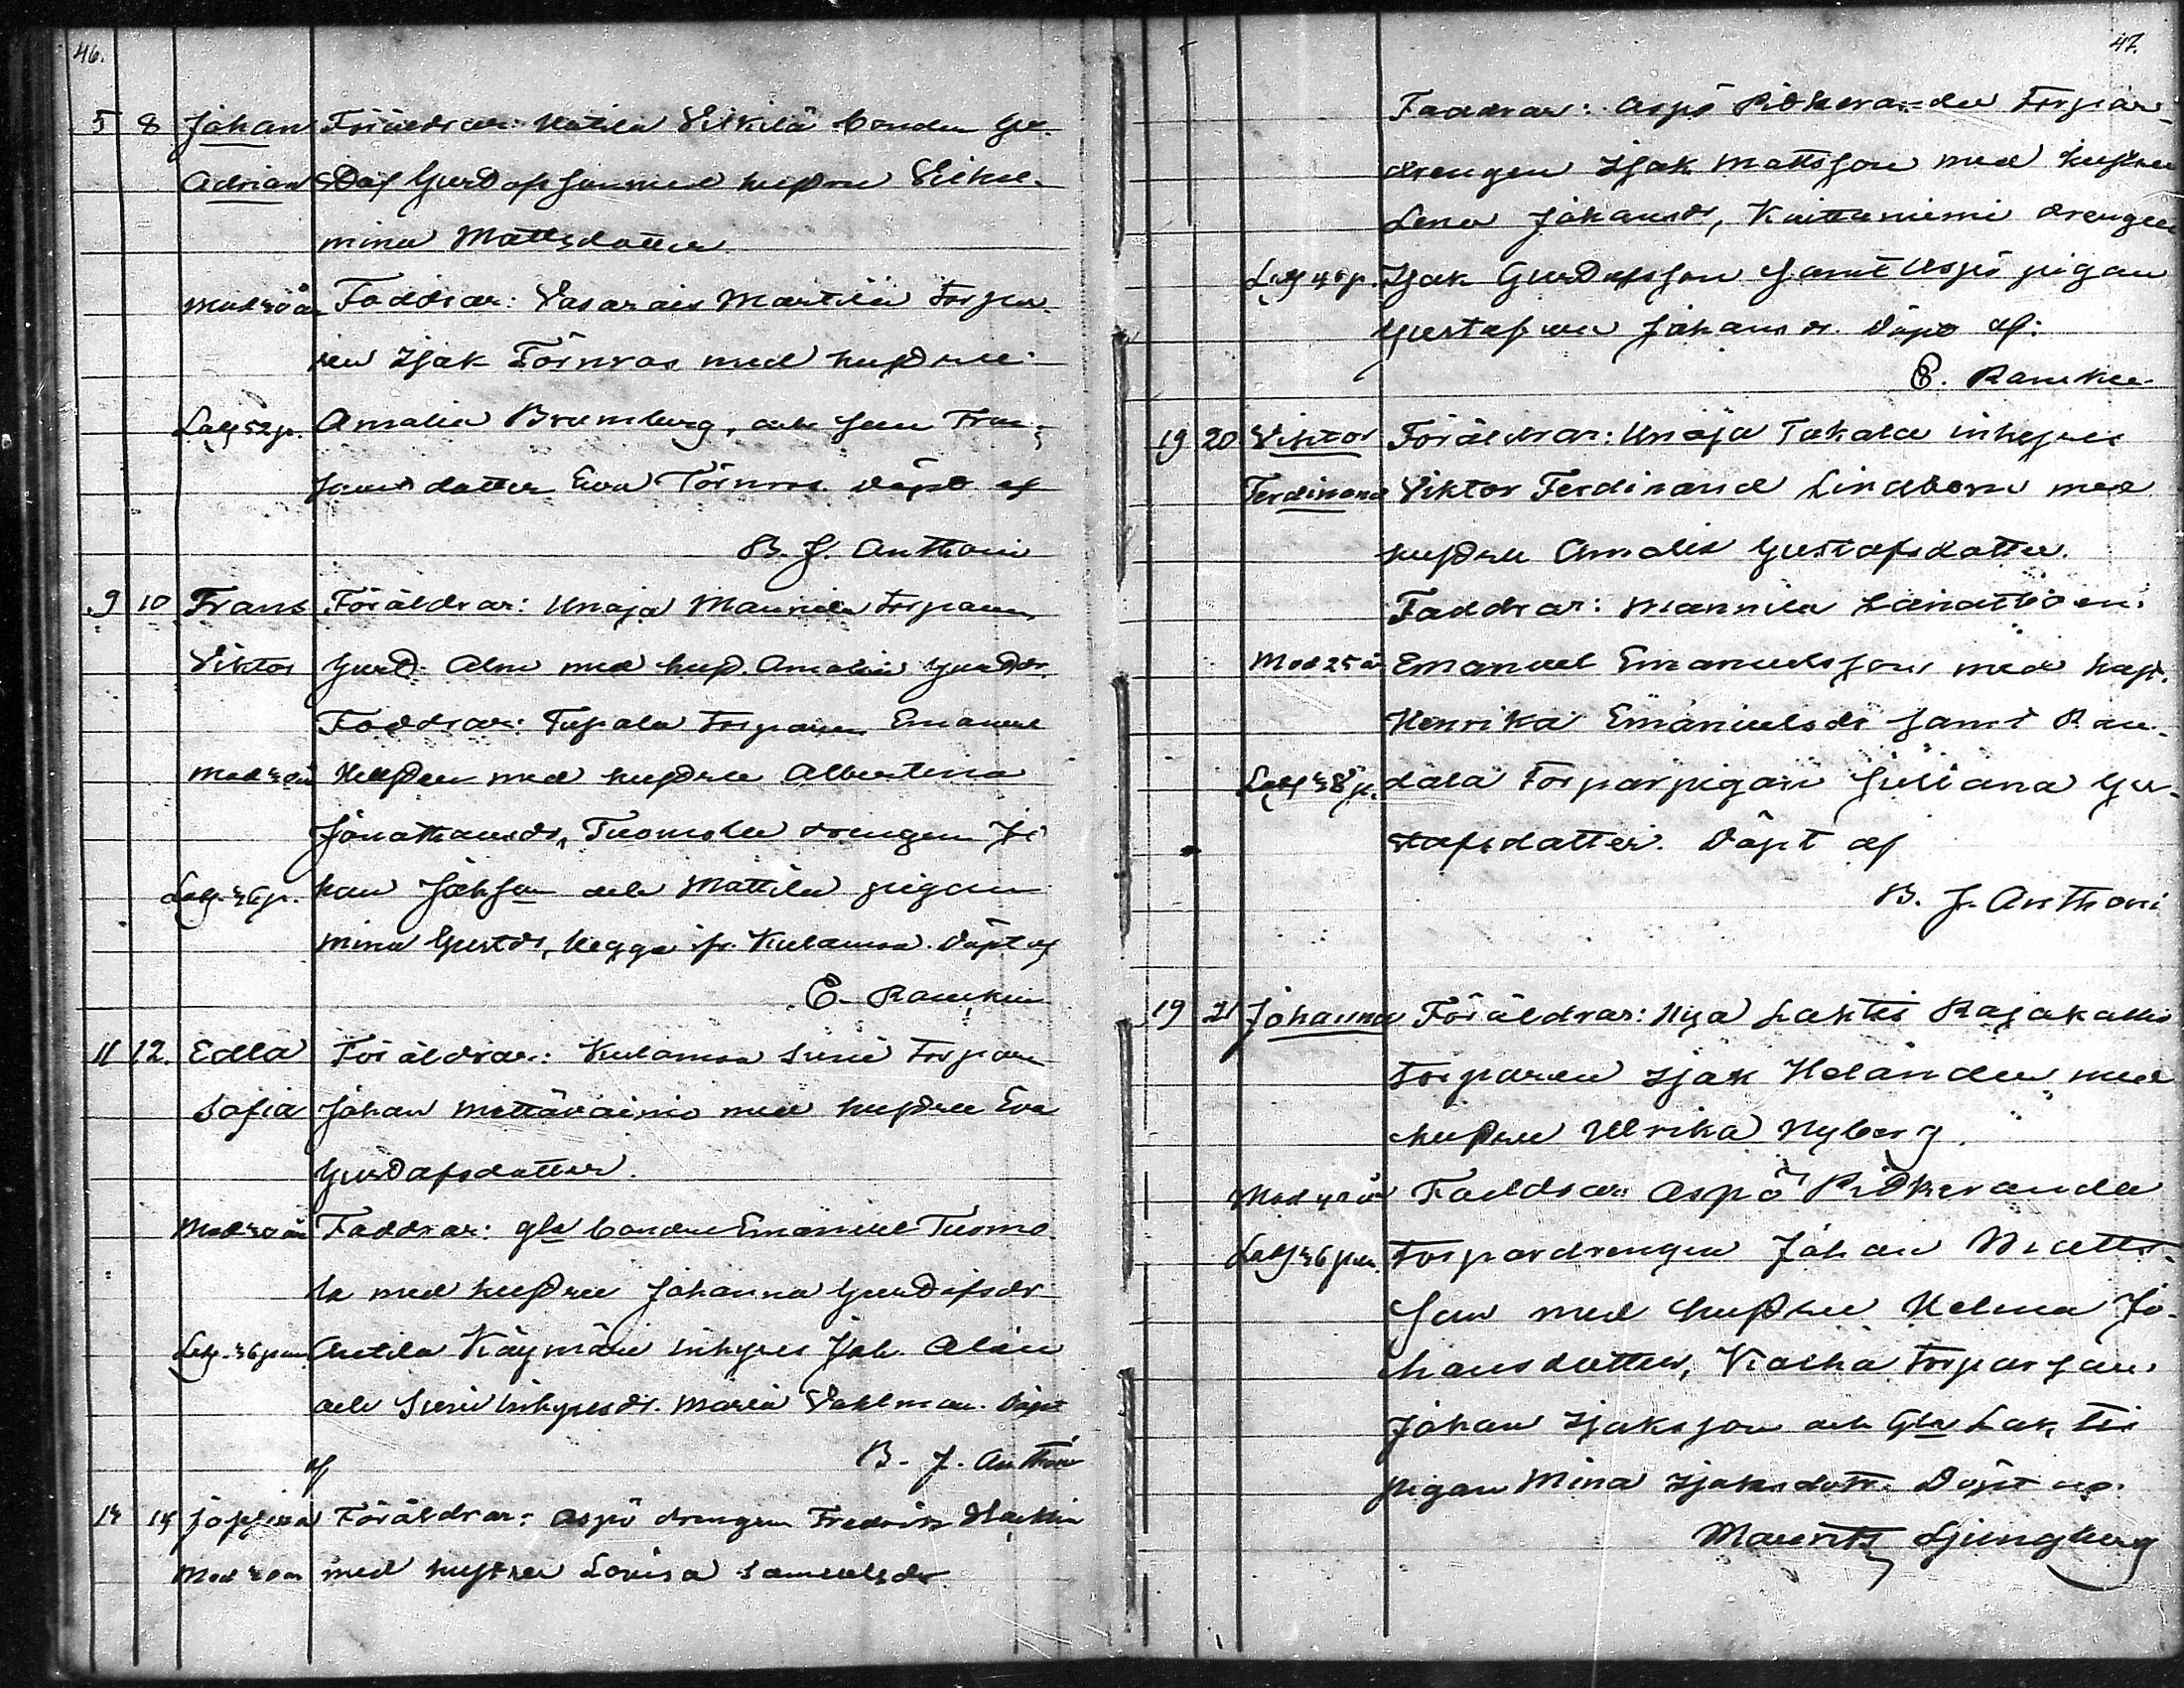 46.
5 8 Johan Föräldrar: Bonden Gu-
Adrian staf Gustafsson med hustru Vilhel-
mina Mattsdotter
Mod 30 år Faddrar: Vasarais Martila torpa-
ren Isak Törnroos med hustru
Lag 52 p. Amalia Brumberg, och
dotter Eva Törnroos. Döpt af
B. J. Anthoni
9 10 Frans Föräldrar: Unaja Mannila torparen
Viktor Gust. Alm med hust. Amalia Gustdr.
Faddrar: torparen Emanuel
Mod år med hustru Albertina
Jonathansdr, Tuomola drengen Jo
Lag. 36 p. han Johsson och Mattila pigan
Mina Gustdr, begge fr. Kulamaa. Döpt af
E. Rancken
11 12. Edla Föräldrar: Kulamaa Suni torparen
Sofia Johan Mettävainio med hustru Eva
Gustafsdotter.
Mod 30 år Faddrar: gla bonden Emanuel Tuomo
la med hustru Johanna Gustafsdr
Lag. 36 p. Antila Käymäri inhyses Joh. Alén
och Suni inhysesdr. Maria Vahlman. Döpt
af B. J. Anthoni
14 14 Josefina Föräldrar: Aspö drengen Fredrik
Mod med hustru Lovisa Samuelsdr
47.
Faddrar: Aspö Pitkeranda torpar-
drengen Isak Mattsson med hustru
Lena Johansdr, Kaittaniemi drengen
Lag 40 p. Isak Gustafsson samt Aspö pigan
Gustafava Johansdr. Döpt af:
E. Rancken
19 20 Viktor Föräldrar: Unaja Takala inhyses
Ferdinand Viktor Ferdinand Lindbom med
hustru Amalia Gustafsdotter.
Faddrar: Mannila
Mod 25 år Emanuel Emanuelsson med hust.
Henrika Emanuelsdr samt Rau-
Lag 38 p. dala torparpigan Juliana Gu-
stafsdotter. Döpt af
B. J. Anthoni
19 21 Johanna Föräldrar: Nya Laktis Rajakallio
torparen Isak Helander med
hustru Ulrika Nyberg.
Mod 40 år Faddrar: Aspö Pitkeranda
Lag 36 p. torpardrengen Johan Matts-
son med hustru Helena Jo-
hansdotter, torparson
Johan Isaksson och Gla Laktis
pigan Mina Isaksdottr. Döpt af.
Maurits Ljungberg